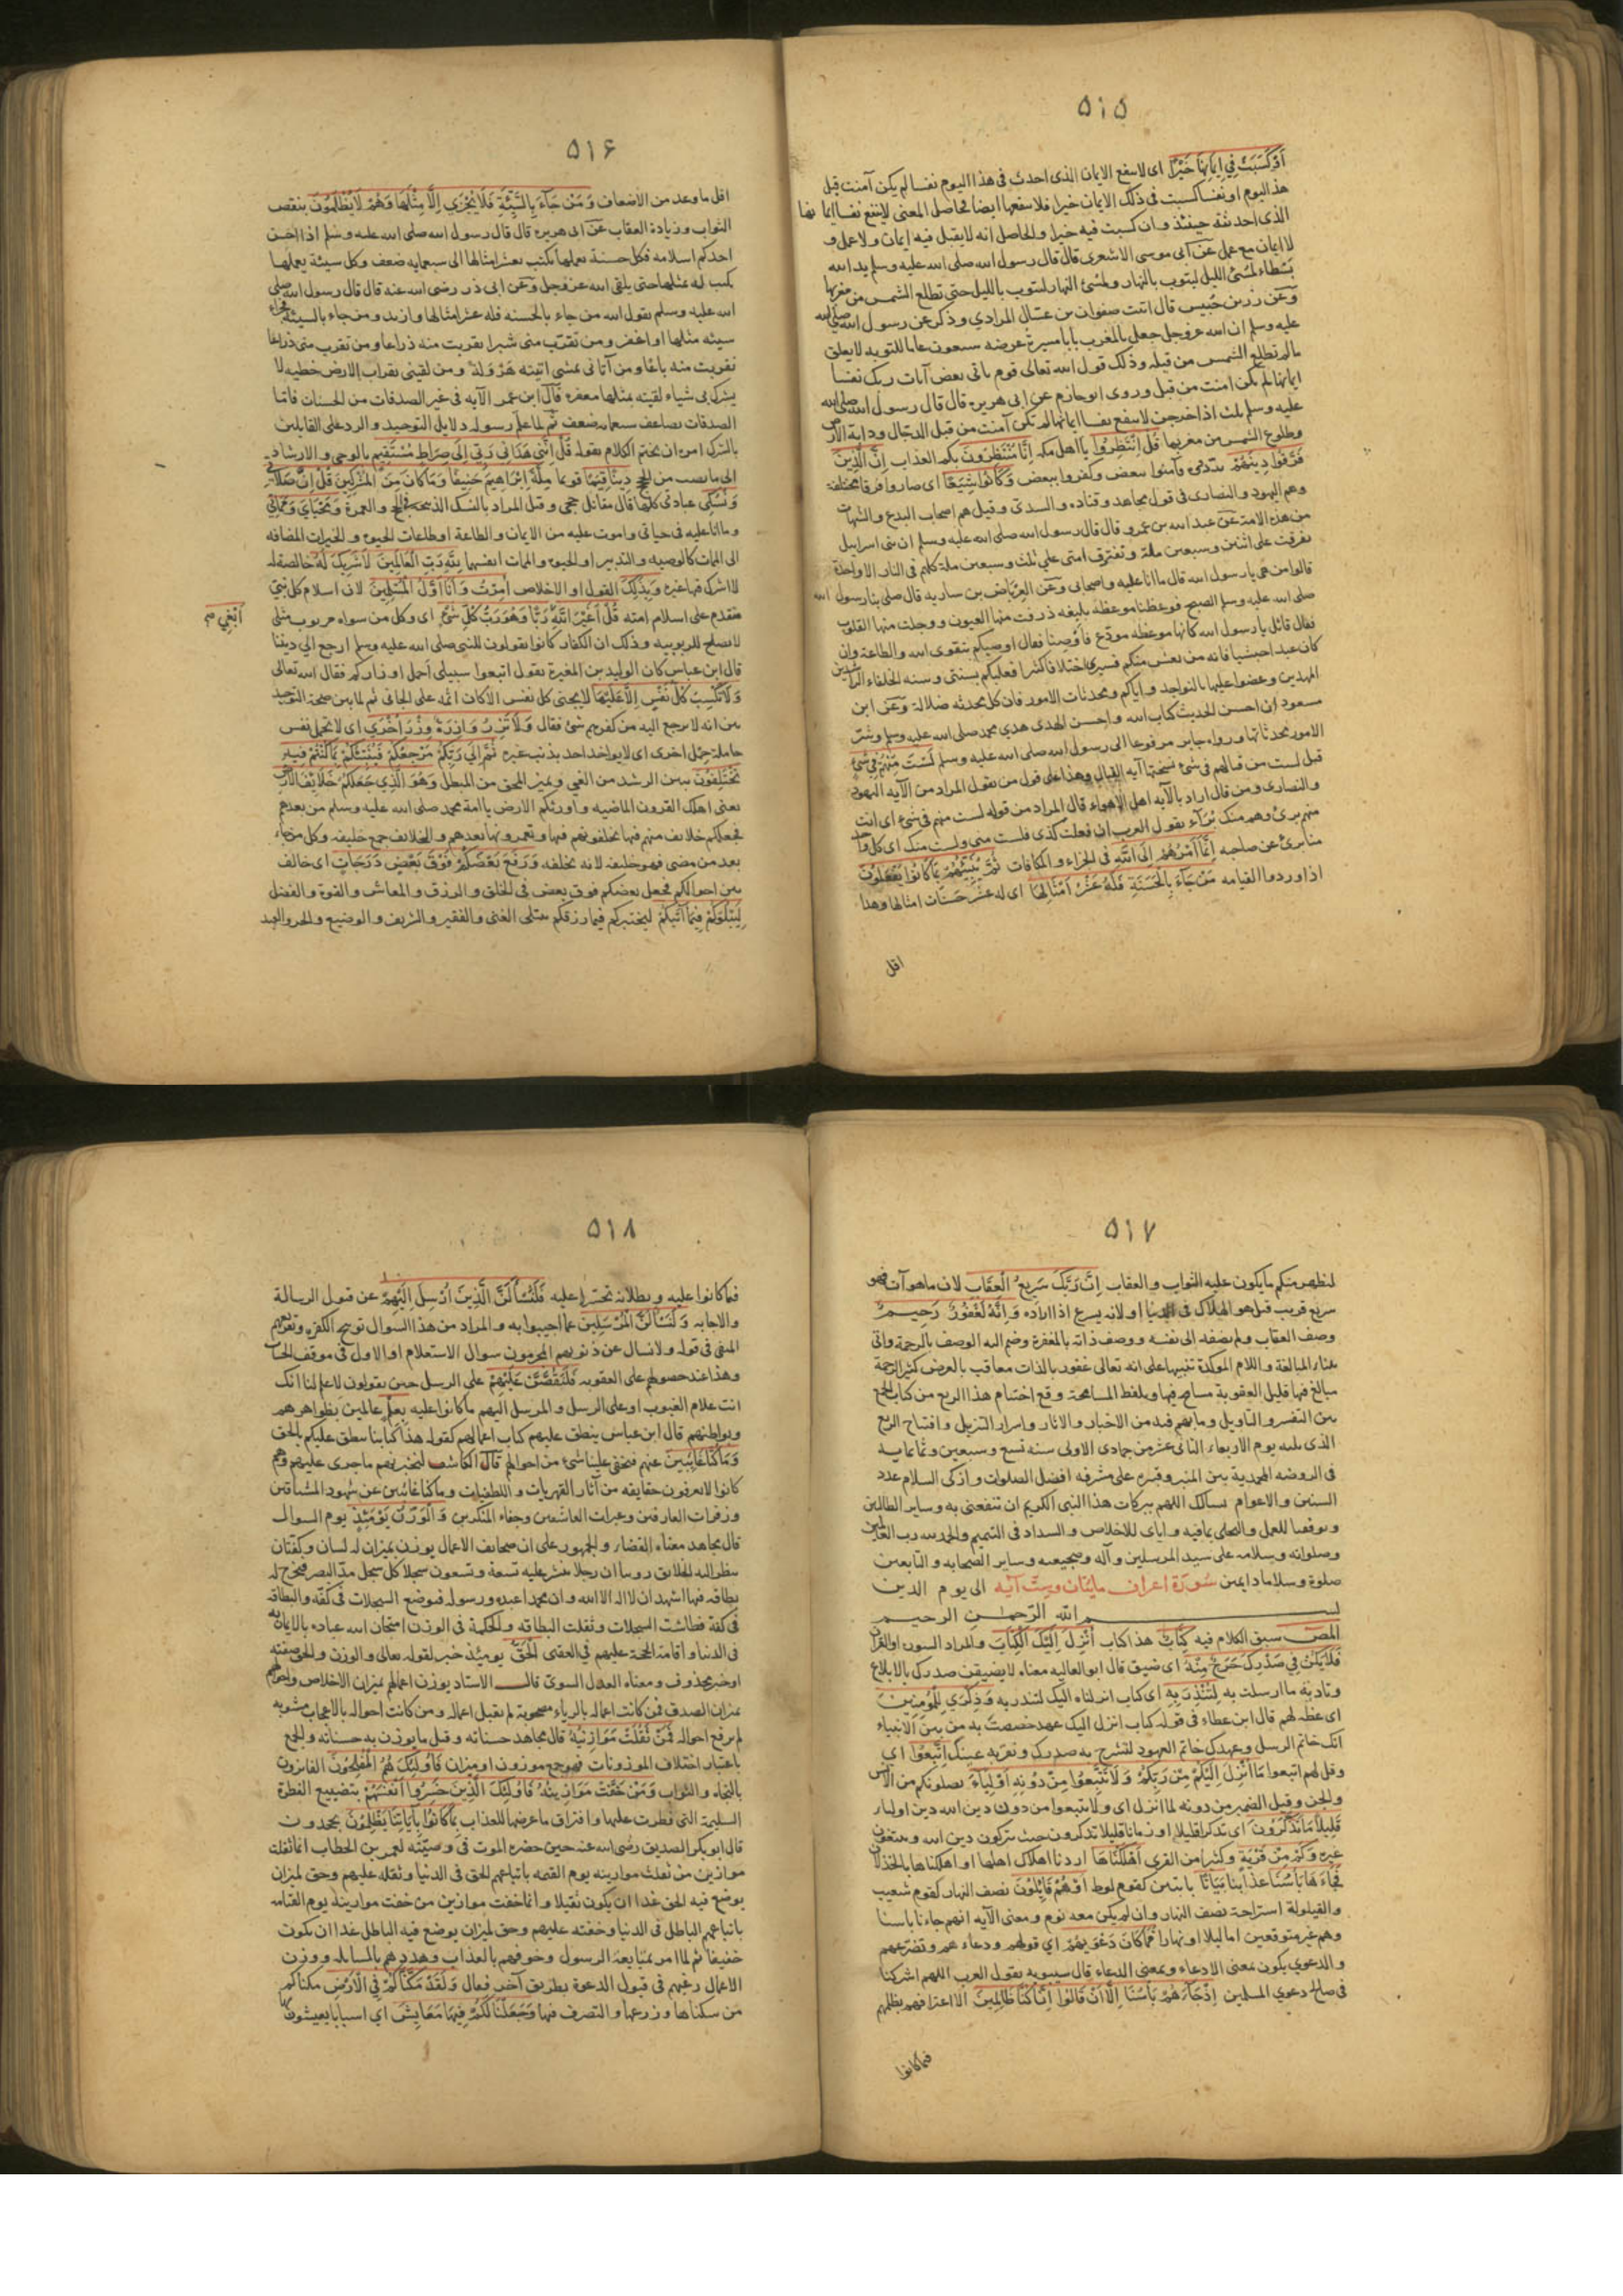 ٥١٥
أَوْ كَسَبَتْ فِي إِيمَانِهَا خَيْرًا اى لا ينفع الايمان الذى احدث فى هذا اليوم نفسا لم يكن آمنت قبل
هذا اليوم او نفسا كسبت فى ذلك الايمان خيرا فلا ينفعها ايضا فحاصل المعنى لا ينفع نفسا
الذى احدثته حينئذ وان كسبت فيه خيرا والحاصل انه لا يقبل فيه ايمان ولا عمل و
لا ايمان مع عمل عن ابى موسى الاشعرى قال قال رسول الله صلى الله عليه وسلم يد الله
بسطاء لمسئ الليل ليتوب بالنهار ولمسئ النهار ليتوب بالليل حتى تطلع الشمس من مغربها
وعن زر بن حبيس قال اتيت صفوان بن عسال المرادي وذكر عن رسول الله صلى الله
عليه وسلم ان الله عز وجل جعل بالمغرب بابا مسيرة عرضه سبعون عاما للتوبه لا يغلق
مالم تطلع الشمس من قبله وذلك قول الله تعالى يوم ياتى بعض آيات ربك لا ينفع نفسا
ايمانها لم تكن امنت من قبل وروى ابو حازم عن ابى هريره قال قال رسول الله صلى الله
عليه وسلم ثلث اذا خرجن لا ينفع نفسا ايمانها لم تكن آمنت من قبل الدجال ودابة الارض
وطلوع الشمس من مغربها قُلِ انْتَظِرُوا يا اهل مكه إِنَّا مُنْتَظِرُونَ بكم العذاب إِنَّ الَّذِينَ
فَرَّقُوا دِينَهُمْ بددوه فآمنوا ببعض وكفروا ببعض وَكَانُوا شِيَعًا اى صاروا فرقا مختلفة
وهم اليهود والنصارى فى قول مجاهد وقتاده والسدى وقيل هم اصحاب البدع والشبهات
من هذه الامة عن عبد الله بن عمرو قال قال رسول الله صلى الله عليه وسلم ان بنى اسرائيل
تفرقت على اثنتين وسبعين ملة وتفترق امتى على ثلث وسبعين ملة كلهم فى النار الا واحدة
قالوا من هى يا رسول الله قال ما انا عليه واصحابى وعن العرباض بن ساريه قال صلى بنا رسول الله
صلى الله عليه وسلم الصبح فوعظنا موعظة بليغه ذرفت منها العيون ووجلت منها القلوب
فقال قائل يا رسول الله كانها موعظه مودع فاوصنا فقال اوصيكم بتقوى الله والطاعة وان
كان عبدا حبشيا فانه من يعش منكم فسيرى اختلافا كثيرا فعليكم بسنتى وسنه الخلفاء الراشدين
المهديين وعضوا عليها بالنواجد واياكم ومحدثات الامور فان كل محدثه ضلالة وعن ابن
مسعود ان احسن الحديث كتاب الله واحسن الهدى هدى محمد صلى الله عليه وسلم وشر
الامور محدثاتها ورواه جابر مرفوعا الى رسول الله صلى الله عليه وسلم لَسْتَ مِنْهُمْ فِي شَيْءٍ
قيل لست من قتالهم فى شئ نسختها آيه القتال وهذا على قول من يقول المراد من الآيه اليهود
والنصارى ومن قال اراد بالآيه اهل الاهواء قال المراد من قوله لست منهم فى شئ اى انت
منهم برئ وهم منك برآء يقول العرب ان فعلت كذى فلست منى ولست منك اى كل واحد
منا برئ عن صاحبه إِنَّمَا أَمْرُهُمْ إِلَى اللَّهِ فى الجزاء والمكافات ثُمَّ يُنَبِّئُهُمْ بِمَا كَانُوا يَفْعَلُونَ
اذا وردوا القيامه مَنْ جَاءَ بِالْحَسَنَةِ فَلَهُ عَشْرُ أَمْثَالِهَا اى له عشر حسنات امثالها وهذا
اقل
٥١۶
اقل ما وعد من الاضعاف وَمَنْ جَاءَ بِالسَّيِّئَةِ فَلَا يُجْزَى إِلَّا مِثْلَهَا وَهُمْ لَا يُظْلَمُونَ بنقص
الثواب وزيادة العقاب عن ابى هريره قال قال رسول الله صلى الله عليه وسلم اذا احسن
احدكم اسلامه فكل حسنة يعملها تكتب بعشر امثالها الى سبعمايه ضعف وكل سيئة يعملها
تكتب له بمثلها حتى يلقى الله عز وجل وعن ابى ذر رضى الله عنه قال قال رسول الله صلى
الله عليه وسلم يقول الله من جاء بالحسنه فله عشر امثالها وازيد ومن جاء بالسيئة فجزاء
سيئه مثلها او اغفر ومن تقرب منى شبرا تقربت منه ذراعا ومن تقرب منى ذراعا
تقربت منه باعا ومن آتانى يمشى اتيته هرولة ومن لقينى بقراب الارض خطيه لا
يشرك بى شياء لقيته بمثلها مغفره قال ابن عمر الآيه فى غير الصدقات من الحسنات فاما
الصدقات يضاعف سبعمايه ضعف ثم لما علم رسوله دلايل التوحيد والرد على القايلين
بالشرك امره ان يختم الكلام بقوله قُلْ إِنَّنِي هَدَانِي رَبِّي إِلَى صِرَاطٍ مُسْتَقِيمٍ بالوحى والارشاد
الى ما نصب من الحجج دِينًا قِيَمًا قويما مِلَّةَ إِبْرَاهِيمَ حَنِيفًا وَمَا كَانَ مِنَ الْمُشْرِكِينَ قُلْ إِنَّ صَلَاتِي
وَنُسُكِي عبادتى كلها قال مقاتل حجى وقيل المراد بالنسك الذبيحة فى الحج والعمرة وَمَحْيَايَ وَمَمَاتِي
وما انا عليه فى حياتى واموت عليه من الايمان والطاعة او طاعات الحيوه والخيرات المضافه
الى الممات كالوصيه والتدبير او الحيوه والممات انفسهما لِلَّهِ رَبِّ الْعَالَمِينَ لَا شَرِيكَ لَهُ خالصة له
لا اشرك فيها غيره وَبِذَلِكَ القول او الاخلاص أُمِرْتُ وَأَنَا أَوَّلُ الْمُسْلِمِينَ لان اسلام كل نبى
متقدم على اسلام امته قُلْ أَغَيْرَ اللَّهِ رَبًّا وَهُوَ رَبُّ كُلِّ شَيْءٍ اى وكل من سواه مربوب مثلى
أَبْغِي صح
لا يصلح للربوبيه وذلك ان الكفار كانوا يقولون للنبى صلى الله عليه وسلم ارجع الى ديننا
قال ابن عباس كان الوليد بن المغيرة يقول اتبعوا سبيلى احمل اوزاركم فقال الله تعالى
وَلَا تَكْسِبُ كُلُّ نَفْسٍ إِلَّا عَلَيْهَا لا يجنى كل نفس الا كان اثمه على الجانى ثم لما بين صحة التوحيد
بين انه لا يرجع اليه من كفرهم شئ فقال وَلَا تَزِرُ وَازِرَةٌ وِزْرَ أُخْرَى اى لا تحمل نفس
حاملة حمل اخرى اى لا يواخذ احد بذنب غيره ثُمَّ إِلَى رَبِّكُمْ مَرْجِعُكُمْ فَيُنَبِّئُكُمْ بِمَا كُنْتُمْ فِيهِ
تَخْتَلِفُونَ يبين الرشد من الغى ويميز المحق من المبطل وَهُوَ الَّذِي جَعَلَكُمْ خَلَائِفَ الْأَرْضِ
يعنى اهلك القرون الماضيه واورثكم الارض يا امة محمد صلى الله عليه وسلم من بعدهم
فجعلكم خلائف منهم فيها تخلفونهم فيها وتعمرونها بعدهم والخلائف جمع خليفه وكل من جاء
بعد من مضى فهو خليفه لانه يخلفه وَرَفَعَ بَعْضَكُمْ فَوْقَ بَعْضٍ دَرَجَاتٍ اى خالف
بين احوالكم فجعل بعضكم فوق بعض فى الخلق والرزق والمعاش والقوة والفضل
لِيَبْلُوَكُمْ فِيمَا آتَيكُمْ ليختبركم فيما رزقكم يبتلى الغنى والفقير والشريف والوضيع والحر والعبد
٥١٧
ليظهر منكم ما يكون عليه الثواب والعقاب إِنَّ رَبَّكَ سَرِيعُ الْعِقَابِ لان ما هو آت فهو
سريع قريب قيل هو الهلاك فى الدنيا او لانه يسرع اذا اراده وَإِنَّهُ لَغَفُورٌ رَحِيمٌ
وصف العقاب ولم يضفه الى نفسه ووصف ذاته بالمغفرة وضم اليه الوصف بالرحمة واتى
ببناء المبالغة واللام الموكدة تنبيها على انه تعالى غفور بالذات معاقب بالعرض كثير الرحمة
مبالغ فيها قليل العقوبة مسامح فيها وبلفظ المسامحة وقع اختتام هذا الربع من كتاب الجمع
بين التفسير والتاويل وما يهم فيه من الاخبار والاثار واسرار التنزيل وافتتاح الربع
الذى يليه يوم الاربعاء الثانى عشر من جمادى الاولى سنه تسع وسبعين وثمانمايه
فى الروضه المحمدية بين المنبر وقبره على مشرفه افضل الصلوات وازكى السلام عدد
السنين والاعوام نسالك اللهم ببركات هذا النبى الكريم ان تنفعنى به وساير الطالبين
وتوفقنا للعمل والتحلى بما فيه واياى للاخلاص والسداد فى التتميم والحمد لله رب العالمين
وصلواته وسلامه على سيد المرسلين وآله وصحبه وساير الصحابه والتابعين
صلوة وسلاما دايمين سورة اعراف مايتان وست آيه الى يوم الدين
بسم الله الرحمن الرحيم
المص سبق الكلام فيه كِتَابٌ هذا كتاب أُنْزِلَ إِلَيْكَ الْكِتَابُ والمراد السوره او القرآن
فَلَا يَكُنْ فِي صَدْرِكَ حَرَجٌ مِنْهُ اى ضيق قال ابو العاليه معناه لا يضيقن صدرك بالابلاغ
وتادية ما ارسلت به لِتُنْذِرَ بِهِ اى كتاب انزلناه اليك لتنذر به وَذِكْرَى لِلْمُؤْمِنِينَ
اى عظه لهم قال ابن عطاء فى قوله كتاب انزل اليك عهد خصصت به من بين الانبياء
انك خاتم الرسل وعهدك خاتم العهود لتشرح به صدرك وتقر به عينك اتَّبِعُوا اى
وقل لهم اتبعوا مَا أُنْزِلَ إِلَيْكُمْ مِنْ رَبِّكُمْ وَلَا تَتَّبِعُوا مِنْ دُونِهِ أَوْلِيَاءَ يضلونكم من الانس
والجن وقيل الضمير من دونه لما انزل اى ولا تتبعوا من دون دين الله دين اولياء
قَلِيلًا مَا تَذَكَّرُونَ اى تذكرا قليلا او زمانا قليلا تذكرون حيث تتركون دين الله وتتبعون
غيره وَكَمْ مِنْ قَرْيَةٍ وكثيرا من القرى أَهْلَكْنَاهَا اردنا اهلاك اهلها او اهلكناها بالخذلان
فَجَاءَهَا بَأْسُنَا عذابنا بَيَاتًا بايتين كقوم لوط أَوْ هُمْ قَائِلُونَ نصف النهار كقوم شعيب
والقيلولة استراحة نصف النهار وان لم يكن معه نوم ومعنى الآيه انهم جاءنا باسنا
وهم غير متوقعين اما ليلا او نهارا فَمَا كَانَ دَعْوَيهُمْ اى قولهم ودعاءهم وتضرعهم
والدعوى يكون بمعنى الادعاء وبمعنى الدعاء قال سيبويه يقول العرب اللهم اشركنا
فى صالح دعوى المسلمين إِذْ جَاءَهُمْ بَأْسُنَا إِلَّا أَنْ قَالُوا إِنَّا كُنَّا ظَالِمِينَ الا اعترافهم بظلمهم
فيما كانوا
٥١٨
فيما كانوا عليه وبطلانه تحسرا عليه فَلَنَسْأَلَنَّ الَّذِينَ أُرْسِلَ إِلَيْهِمْ عن قبول الرسالة
والاجابه وَلَنَسْأَلَنَّ الْمُرْسَلِينَ عما اجيبوا به والمراد من هذا السوال توبيخ الكفره وتقريعهم
المنفى فى قوله ولا يسال عن ذنوبهم المجرمون سوال الاستعلام او الاول فى موقف الحساب
وهذا عند حصولهم على العقوبه فَلَنَقُصَّنَّ عَلَيْهِمْ على الرسل حين يقولون لا علم لنا انك
انت علام الغيوب او على الرسل والمرسل اليهم ما كانوا عليه بِعِلْمٍ عالمين بظواهرهم
وبواطنهم قال ابن عباس ينطق عليهم كتاب اعمالهم كقوله هذا كتابنا ينطق عليكم بالحق
وَمَا كُنَّا غَائِبِينَ عنهم فيخفى علينا شئ من احوالهم قال الكاشف لنخبرنهم ما جرى عليهم وهم
كانوا لا يعرفون حقايقه من آثار القهريات واللطفيات وما كنا غائبين عن شهود المشتاقين
وزفرات العارفين وعبرات العاشقين وجفاء المنكرين وَالْوَزْنُ يَوْمَئِذٍ يوم السوال
قال مجاهد معناه القضاء والجمهور على ان صحايف الاعمال يوزن بميزان له لسان وكفتان
ينظر اليه الخلايق روينا ان رجلا ينشر عليه تسعة وتسعون سجلا كل سجل مد البصر فيخرج له
بطاقه فيها اشهد ان لا اله الا الله وان محمدا عبده ورسوله فيوضع السجلات فى كفه والبطاقه
فى كفة فطاشت السجلات وثقلت البطاقه والحكمة فى الوزن امتحان الله عباده بالايمان به
فى الدنيا واقامة الحجة عليهم فى العقبى الْحَقُّ يومئذ خبر لقوله تعالى والوزن والحق صفته
او خبر محذوف ومعناه العدل السوى قال الاستاد يوزن اعمالهم بميزان الاخلاص واحوالهم
بميزان الصدق فمن كانت اعماله بالرياء مصحوبة لم تقبل اعماله ومن كانت احواله بالاعجاب مشوبه
لم يرفع احواله فَمَنْ ثَقُلَتْ مَوَازِينُهُ قال مجاهد حسناته وقيل ما يوزن به حسناته والجمع
باعتبار اختلاف الموزونات فهو جمع موزون او ميزان فَأُولَئِكَ هُمُ الْمُفْلِحُونَ الفائزون
بالنجاة والثواب وَمَنْ خَفَّتْ مَوَازِينُهُ فَأُولَئِكَ الَّذِينَ خَسِرُوا أَنْفُسَهُمْ بتضييع الفطرة
السليمة التى فطرت عليها واقتراف ما عرضها للعذاب بِمَا كَانُوا بِآيَاتِنَا يَظْلِمُونَ يجحدون
قال ابو بكر الصديق رضى الله عنه حين حضره الموت فى وصيته لعمر بن الخطاب انما ثقلت
موازين من ثقلت موازينه يوم القيمه باتباعهم الحق فى الدنيا وثقله عليهم وحق لميزان
يوضع فيه الحق غدا ان يكون ثقيلا وانما خفت موازين من خفت موازينه يوم القيامه
باتباعهم الباطل فى الدنيا وخفته عليهم وحق لميزان يوضع فيه الباطل غدا ان يكون
خفيفا ثم لما امر بمتابعة الرسول وخوفهم بالعذاب وهددهم بالمسايله ووزن
الاعمال رغبهم فى قبول الدعوة بطريق آخر فقال وَلَقَدْ مَكَّنَّاكُمْ فِي الْأَرْضِ مكناكم
من سكناها وزرعها والتصرف فيها وَجَعَلْنَا لَكُمْ فِيهَا مَعَايِشَ اى اسبابا يعيشون بها